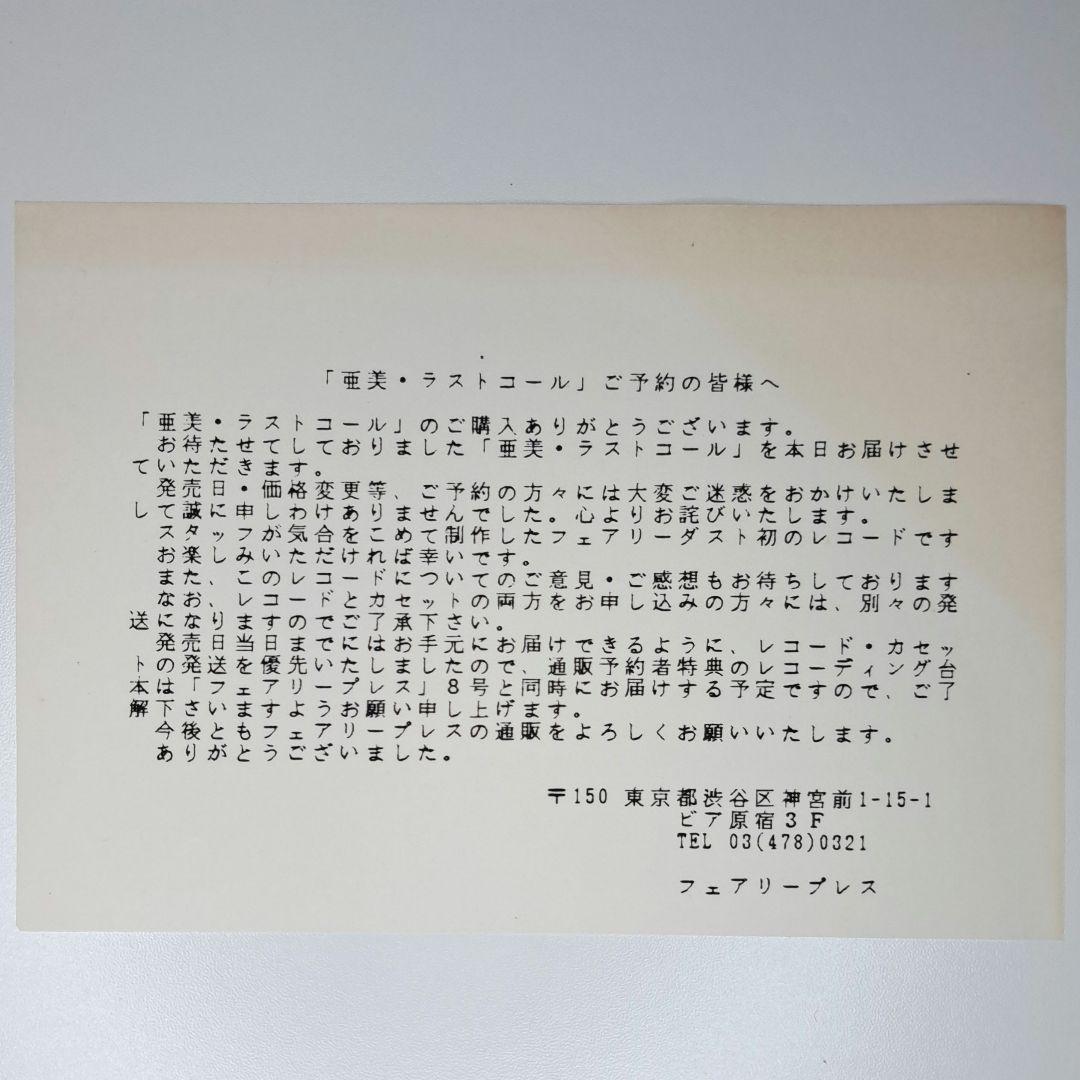 「亜美・ラストコール」ご予約の皆様へ
「亜美・ラストコール」のご購入ありがとうございます。
お待たせてしておりました「亜美・ラストコール」を本日お届けさせ
ていただきます。
発売日・価格変更等、ご予約の方々には大変ご迷惑をおかけいたしま
して誠に申しわけありませんでした。心よりお詫びいたします。
スタッフが気合をこめて制作したフェアリーダスト初のレコードです
お楽しみいただければ幸いです。
また、このレコードについてのご意見・ご感想もお待ちしております
なお、レコードとカセットの両方をお申し込みの方々には、別々の発
送になりますのでご了承下さい。
発売日当日までにはお手元にお届けできるように、レコード・カセッ
トの発送を優先いたしましたので、通販予約者特典のレコーディング台
本は「フェアリープレス」8号と同時にお届けする予定ですので、ご了
解下さいますようお願い申し上げます。
今後ともフェアリープレスの通販をよろしくお願いいたします。
ありがとうございました。
〒150 東京都渋谷区神宮前1-15-1
ビア原宿3F
TEL 03(478)0321
フェアリープレス